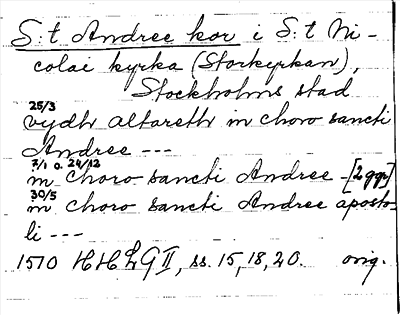 S:t Andree kor i S:t Ni-
colai kyrka (Storkyrkan),
Stockholms stad
25/3
vydh altareth in choro sancti
Andree ---
7/1 o. 24/12
in choro sancti Andree -[2ggr]
30/5
in choro sancti Andree aposto-
li ---
1510 HHLG II, ss. 15, 18, 20. orig.